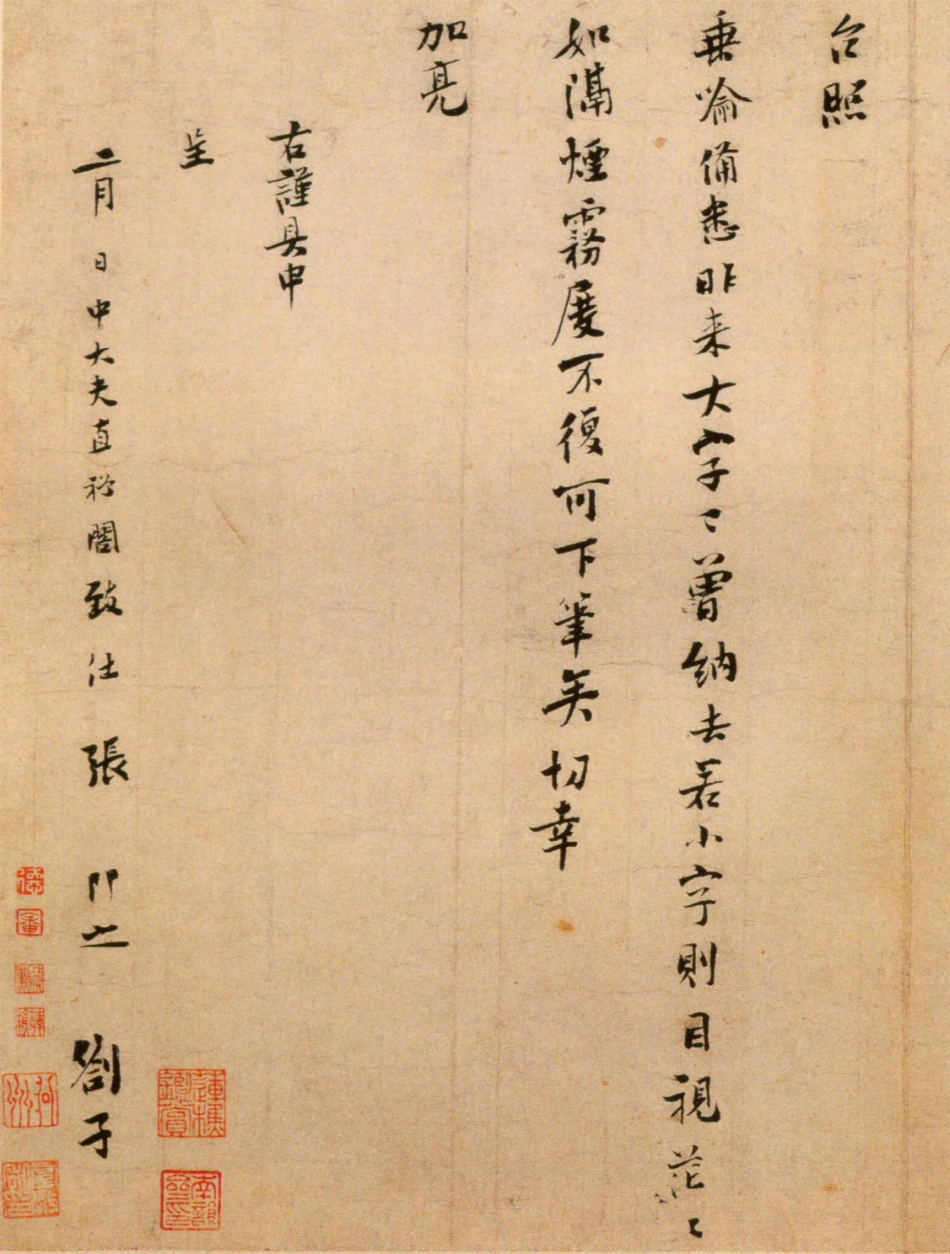 台照
垂喻備悉昨来大字々曾納去若小字則目視茫々
如隔煙霧屡不復可下筆矣切幸
加亮
右謹具申
呈
二月日中大夫直祕閣致仕張即之劄子